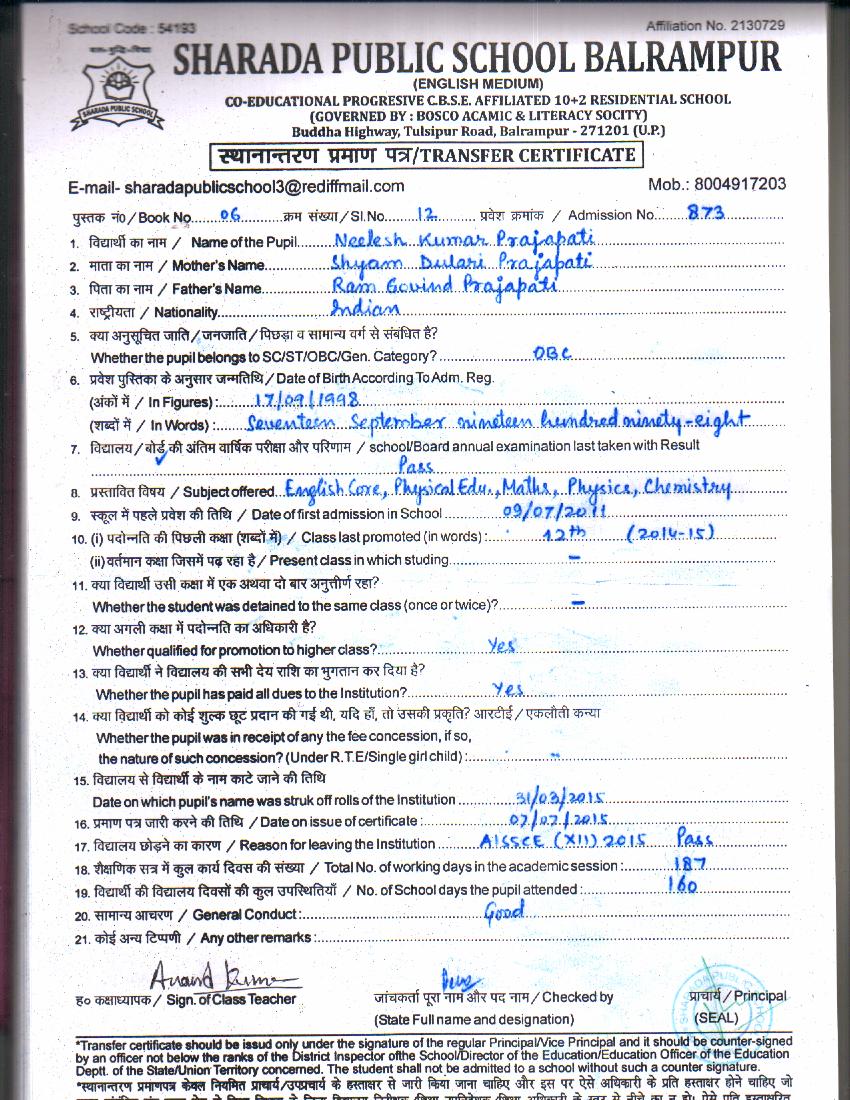 School Code : 54193
Affiliation No. 2130729
SHARADA PUBLIC SCHOOL BALRAMPUR
SHARADA PUBLIC SCHOOL
(ENGLISH MEDIUM)
CO-EDUCATIONAL PROGRESIVE C.B.S.E. AFFILIATED 10+2 RESIDENTIAL SCHOOL
(GOVERNED BY : BOSCO ACAMIC & LITERACY SOCITY)
Buddha Highway, Tulsipur Road, Balrampur - 271201 (U.P.)
स्थानान्तरण प्रमाण पत्र/TRANSFER CERTIFICATE
E-mail- sharadapublicschool3@rediffmail.com Mob.: 8004917203
पुस्तक नं० / Book No. 06 क्रम संख्या / Sl.No. 12 प्रवेश क्रमांक / Admission No. 873
1. विद्यार्थी का नाम / Name of the Pupil Neelesh Kumar Prajapati
2. माता का नाम / Mother's Name Shyam Dulari Prajapati
3. पिता का नाम / Father's Name Ram Govind Prajapati
4. राष्ट्रीयता / Nationality Indian
5. क्या अनुसूचित जाति / जनजाति / पिछड़ा व सामान्य वर्ग से संबंधित है?
Whether the pupil belongs to SC/ST/OBC/Gen. Category? OBC
6. प्रवेश पुस्तिका के अनुसार जन्मतिथि / Date of Birth According To Adm. Reg.
(अंकों में / In Figures) : 17/09/1998
(शब्दों में / In Words) : Seventeen September nineteen hundred ninety-eight
7. विद्यालय / बोर्ड की अंतिम वार्षिक परीक्षा और परिणाम / school/Board annual examination last taken with Result
Pass
8. प्रस्तावित विषय / Subject offered English Core, Physical Edu., Maths, Physics, Chemistry
9. स्कूल में पहले प्रवेश की तिथि / Date of first admission in School 09/07/2011
10. (i) पदोन्नति की पिछली कक्षा (शब्दों में) / Class last promoted (in words) : 12th (2014-15)
(ii) वर्तमान कक्षा जिसमें पढ़ रहा है / Present class in which studing -
11. क्या विद्यार्थी उसी कक्षा में एक अथवा दो बार अनुत्तीर्ण रहा?
Whether the student was detained to the same class (once or twice)? -
12. क्या अगली कक्षा में पदोन्नति का अधिकारी है?
Whether qualified for promotion to higher class? Yes
13. क्या विद्यार्थी ने विद्यालय की सभी देय राशि का भुगतान कर दिया है?
Whether the pupil has paid all dues to the Institution? Yes
14. क्या विद्यार्थी को कोई शुल्क छूट प्रदान की गई थी, यदि हाँ, तो उसकी प्रकृति? आरटीई / एकलौती कन्या
Whether the pupil was in receipt of any the fee concession, if so,
the nature of such concession? (Under R.T.E/Single girl child) : -
15. विद्यालय से विद्यार्थी के नाम काटे जाने की तिथि
Date on which pupil's name was struk off rolls of the Institution 31/03/2015
16. प्रमाण पत्र जारी करने की तिथि / Date on issue of certificate : 07/07/2015
17. विद्यालय छोड़ने का कारण / Reason for leaving the Institution AISSCE (XII) 2015 Pass
18. शैक्षणिक सत्र में कुल कार्य दिवस की संख्या / Total No. of working days in the academic session : 187
19. विद्यार्थी की विद्यालय दिवसों की कुल उपस्थितियाँ / No. of School days the pupil attended : 160
20. सामान्य आचरण / General Conduct : Good
21. कोई अन्य टिप्पणी / Any other remarks :
Anand Kumar
ह० कक्षाध्यापक / Sign. of Class Teacher जांचकर्ता पूरा नाम और पद नाम / Checked by प्राचार्य / Principal
(State Full name and designation) (SEAL)
*Transfer certificate should be issud only under the signature of the regular Principal/Vice Principal and it should be counter-signed
by an officer not below the ranks of the District Inspector ofthe School/Director of the Education/Education Officer of the Education
Deptt. of the State/Union Territory concerned. The student shall not be admitted to a school without such a counter signature.
*स्थानान्तरण प्रमाणपत्र केवल नियमित प्राचार्य/उपप्राचार्य के हस्ताक्षर से जारी किया जाना चाहिए और इस पर ऐसे अधिकारी के प्रति हस्ताक्षर होने चाहिए जो